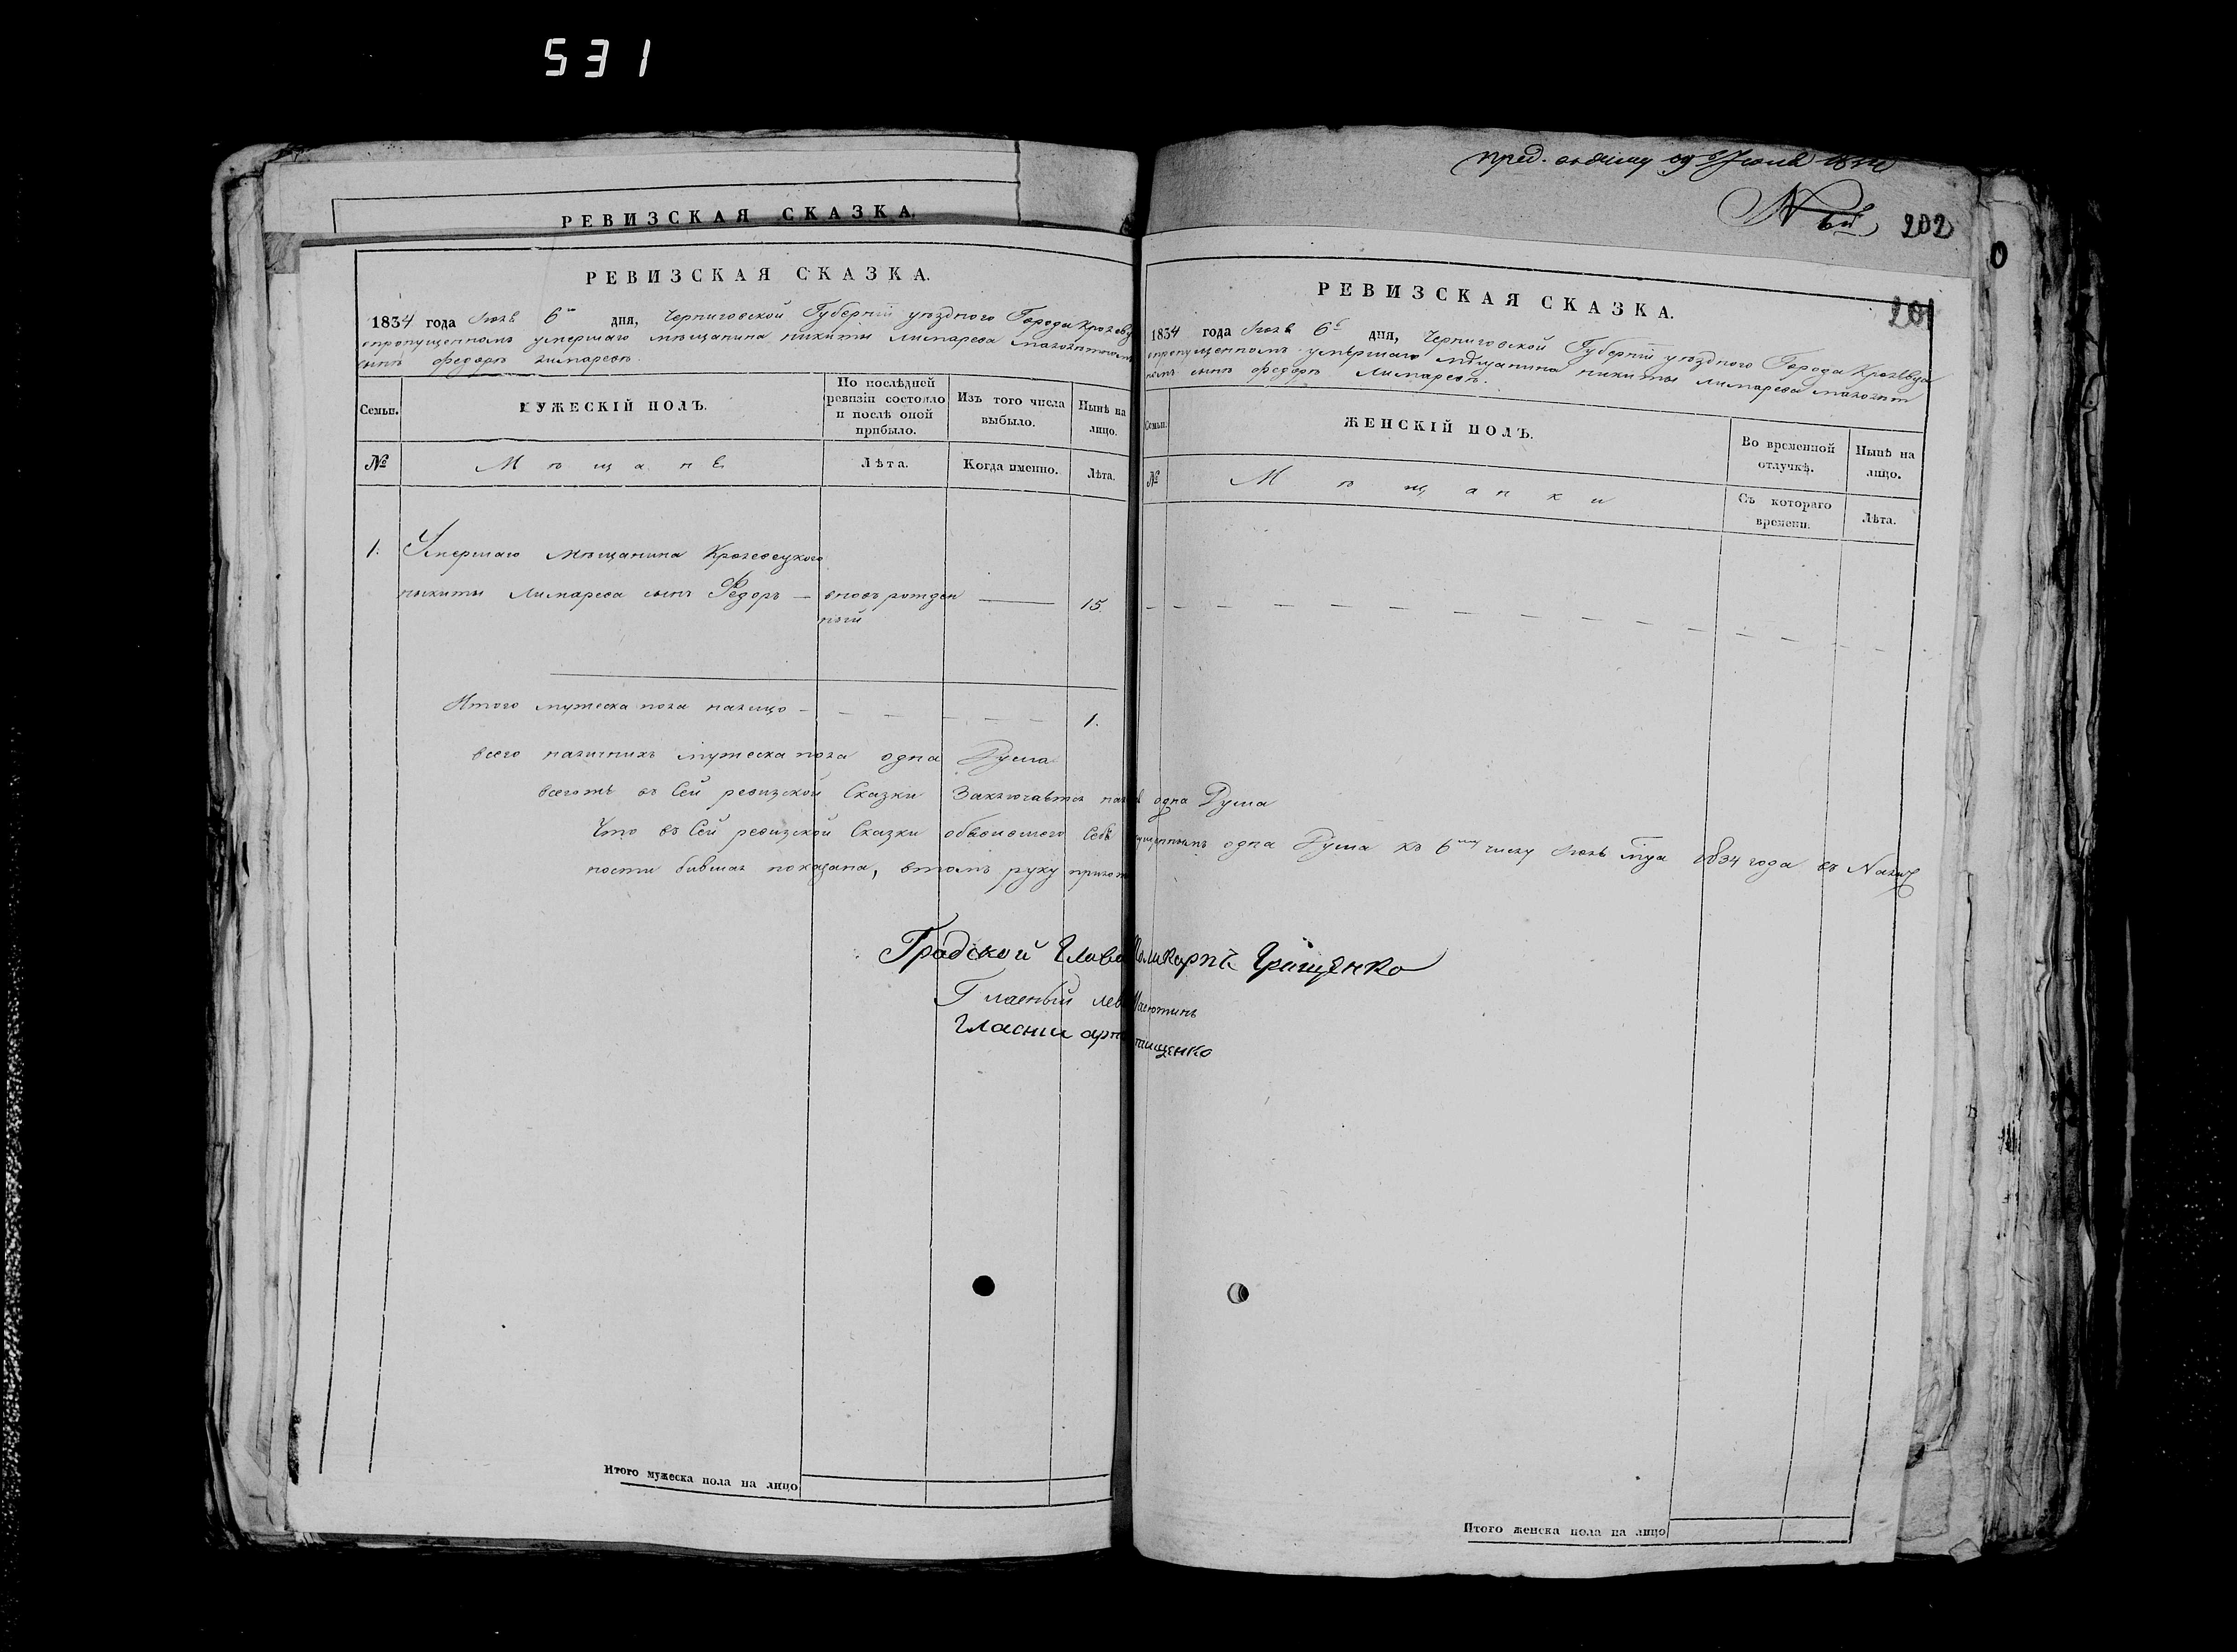 531
РЕВИЗСКАЯ СКАЗКА.
РЕВИЗСКАЯ СКАЗКА.
1834 года Июля 6го дня, Черниговской Губернiи уезднаго Города
опропущенномъ умершаго мѣщанина никиты лимарева малолѣтномъ
сынѣ федорѣ лимаревѣ.
Семьи.
МУЖЕСКІЙ ПОЛЪ.
По послѣдней ревизіи состояло и послѣ оной прибыло.
Изъ того числа выбыло.
Нынѣ на лицо.
№
Мѣщане
Лѣта.
Когда именно.
Лѣта.
1. Умершаго Мѣщанина Кролевецкого
никиты Лимарева сынъ Федоръ — вновь рожден
ный — 15.
Итого мужеска пола налицо — 1.
всего наличныхъ мужеска пола одна Душа
всегожъ въ Сей ревизской Сказки Заключается одна Душа
Что въ Сей ревизской Сказки одна Душа къ 6му числу 1834 года въ
ности бывшая показана, втомъ руку
Градской Глава Поликарпъ Грищенко
Гласный лев
Гласни
Итого мужеска пола на лицо
202
201
РЕВИЗСКАЯ СКАЗКА.
1834 года Июля 6го дня, Черниговской Губернiи уездного Города Кролевца
опропущенномъ умершаго мѣщанина никиты лимарева малолѣт
номъ сынѣ федорѣ Лимаревѣ.
Семьи.
ЖЕНСКІЙ ПОЛЪ.
Во временной отлучкѣ.
Нынѣ на лицо.
№
Мѣщанки
Съ котораго времени.
Лѣта.
Итого женска пола на лицо